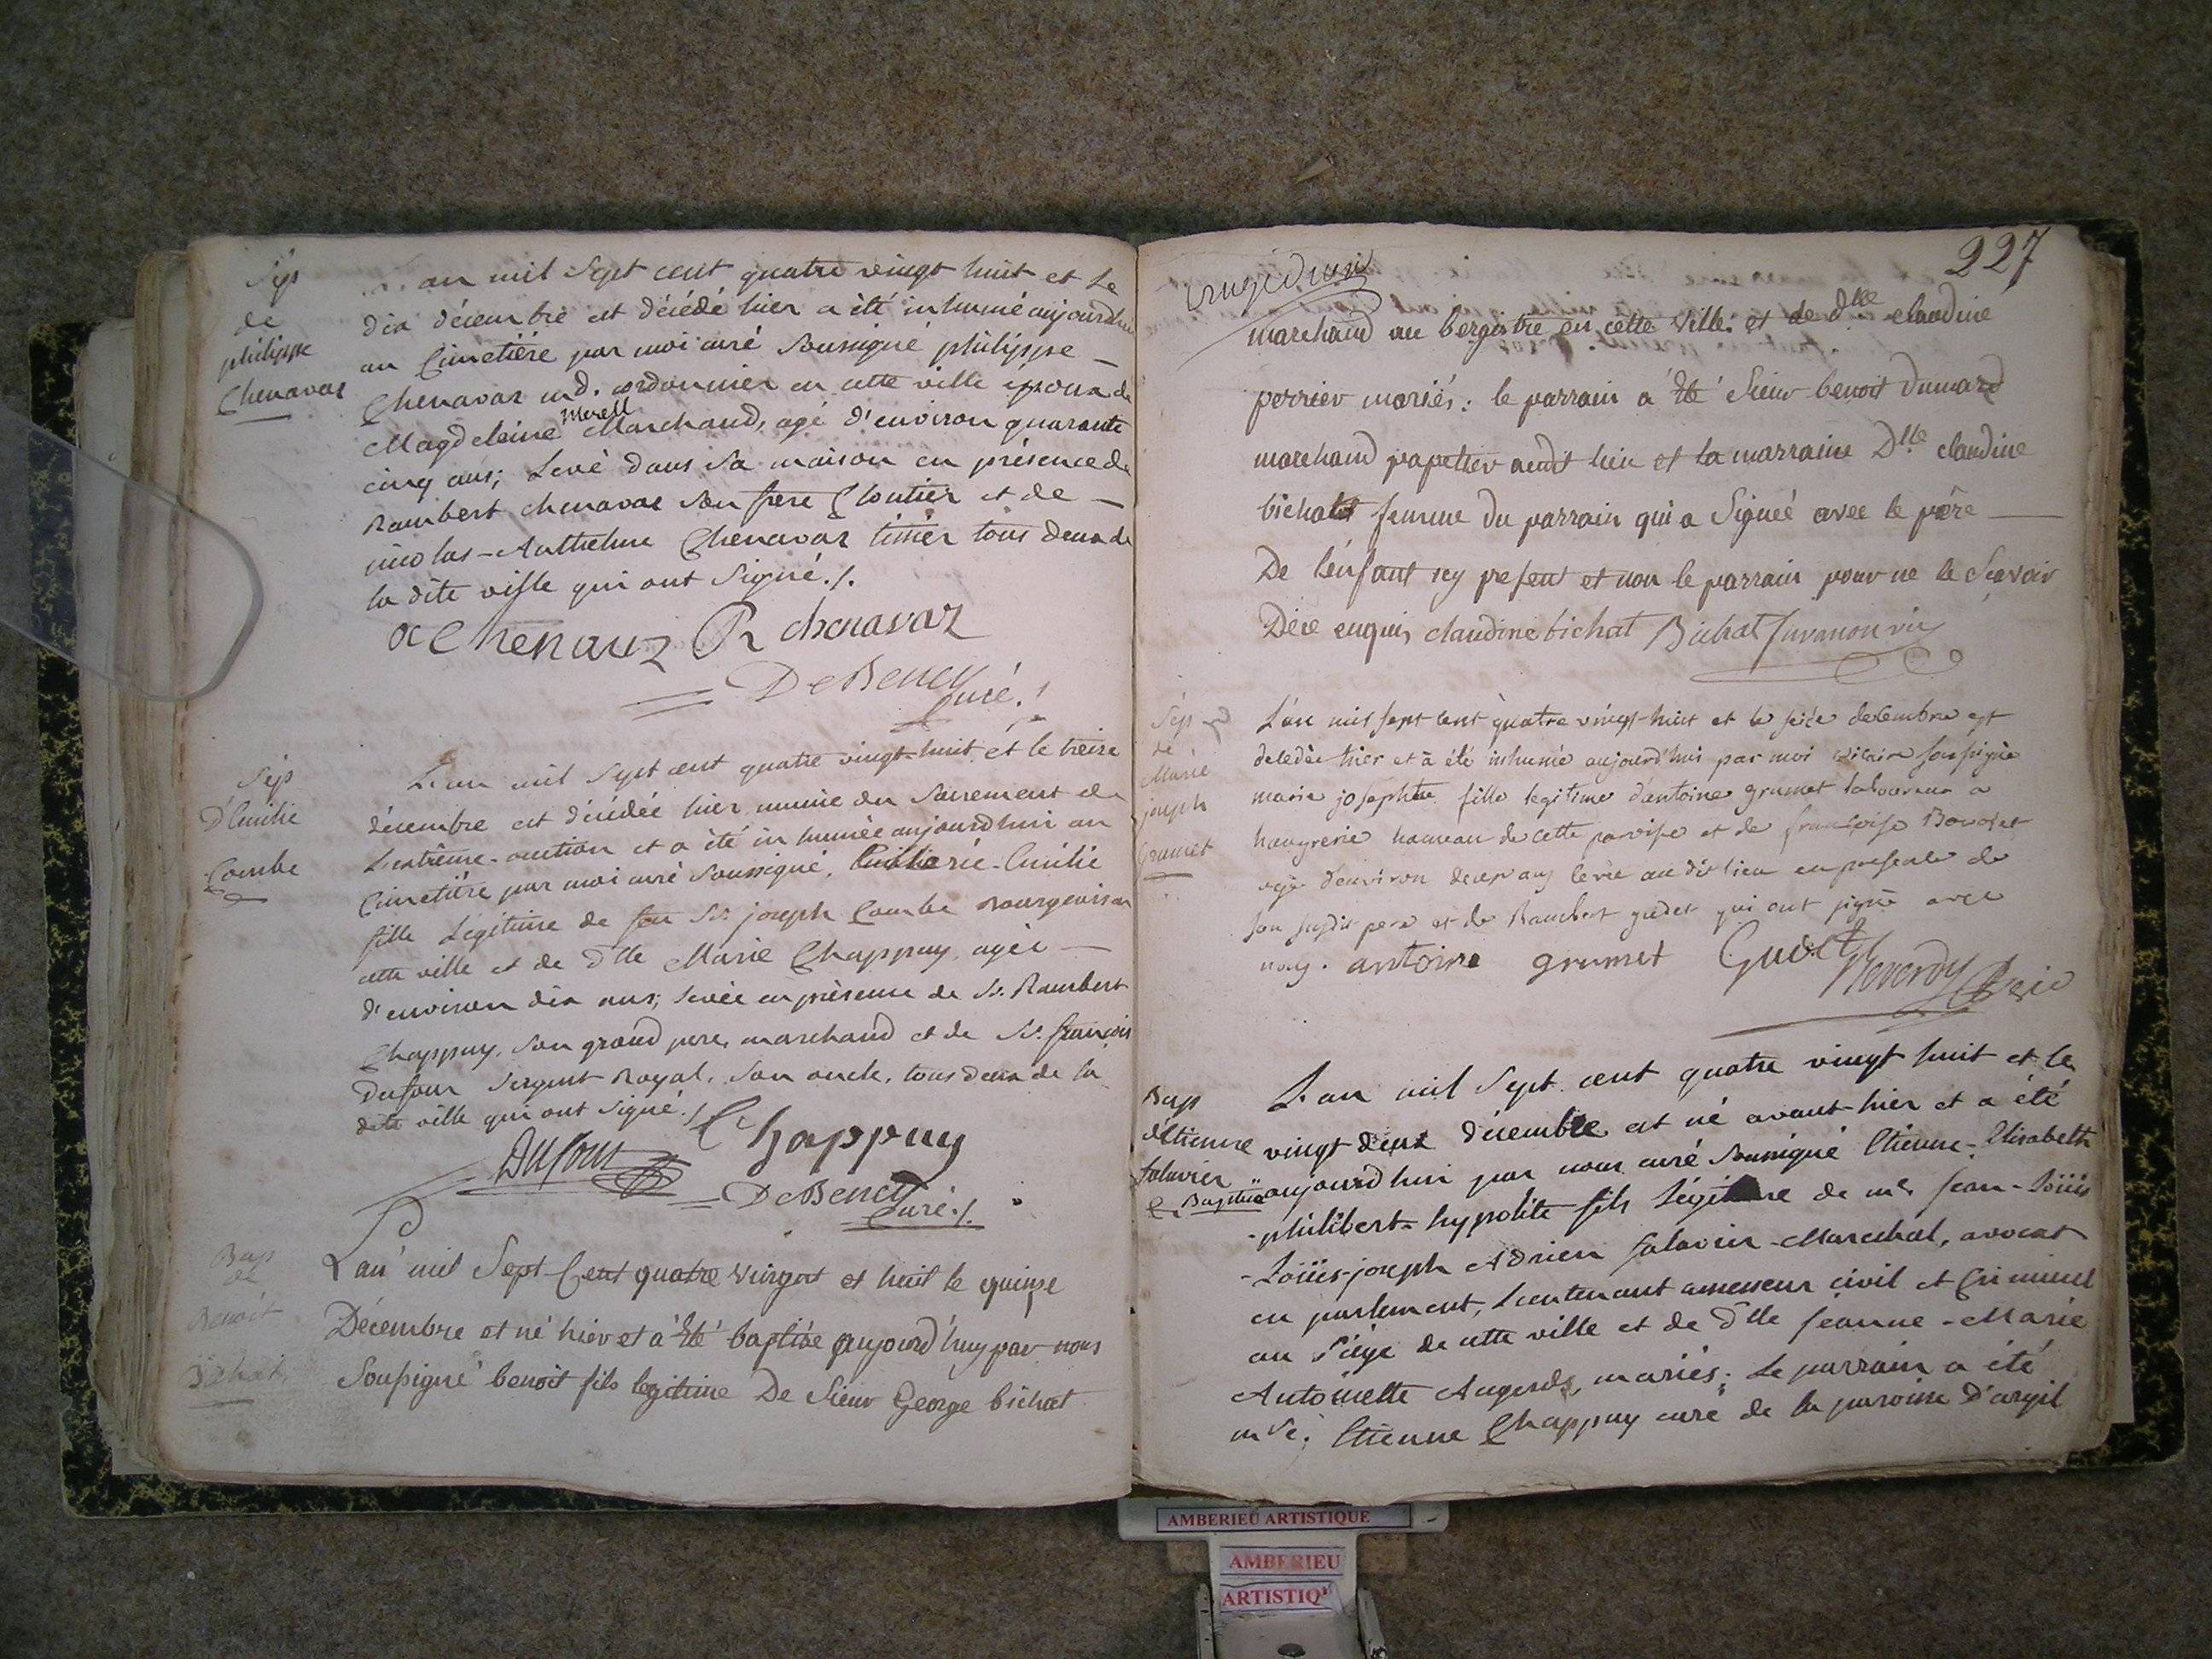 Sep
de
philippe
Chenavaz
an mil Sept cent quatre vingt huit et le
dix décembre est décédé hier a été inhumé aujourdhui
au Cimetière par moi curé Soussigné philippe —
Chenavaz md. cordonnier en cette ville époux de
Magdeleine Marchand, agé d'environ quarante
cinq ans; Levé dans Sa maison en présence de
Rambert chenavaz Son frere Cloutier et de —
nicolas-Anthelme Chenavaz tissier tous deux de
la dite ville qui ont Signé./.
Chenavaz R chenavaz
DeBency
Curé./
Sep
D'Emilie
Combe
L'an mil Sept cent quatre vingt-huit et le treize
décembre est décédée hier munie du Sacrement de
L'extrême-onction et a été inhumée aujourdhui au
Cimetière par moi curé Soussigné, Emilie
fille Légitime de feu Sr. joseph Combe Bourgeois en
cette ville et de dlle Marie Chappuy, agée —
d'environ dix ans; Levée en présence de Sr. Rambert
Chappuy, Son grand pere, marchand et de Sr. françois
Dufour Sergent Royal, Son oncle, tous deux de la
dite ville qui ont Signé./
Chappuy
Dufour
DeBency
Curé./.
Bap
de
Benoit
Bichat
L'an mil Sept Cent quatre vingt et huit le quinze
Décembre et né hier et à été baptise aujourd'huy par nous
Soussigné benoit fils legitime De Sieur George bichat
227
marchand en cette ville et de dlle claudine
perrier mariés: le parrain a été Sieur benoit dumard
marchand papetier audit lieu et la marraine Dlle claudine
bichat femme du parrain qui a Signé avec le père —
De l'enfant icy present et non le parrain pour ne le Scavoir
Dece enquis claudine bichat Bichat
Sep
de
Marie
joseph
Grumet
L'an mil sept cent quatre vingt-huit et le seize decembre est
decedée hier et à été inhumée aujourd'hui par moi vicaire soussigné
marie josephte fille legitime d'antoine grumet laboureur a
hameau de cette paroisse et de françoise
agée d'environ deux ans levée au dit lieu en presence de
son susdit pere et de Rambert gudet qui ont signé avec
nous. antoine grumet Gudet
Reverdy
Bap
d'Etienne
Salavin
L'an mil Sept cent quatre vingt huit et le
vingt deux décembre est né avant-hier et a été
Baptisé aujourd'hui par nous curé Soussigné Etienne-Elisabeth
-philibert-hypolite fils Légitime de me. jean-Loüis
-Loüis-joseph Adrien Salavin-Marechal, avocat
en parlement, Lieutenant assesseur civil et Criminel
au Siége de cette ville et de dlle jeanne-Marie
Antoinette Augerd, mariés; Le parrain a été
Etienne Chappuy curé de la paroisse D'argil
AMBERIEU ARTISTIQUE
AMBERIEU
ARTISTIQ